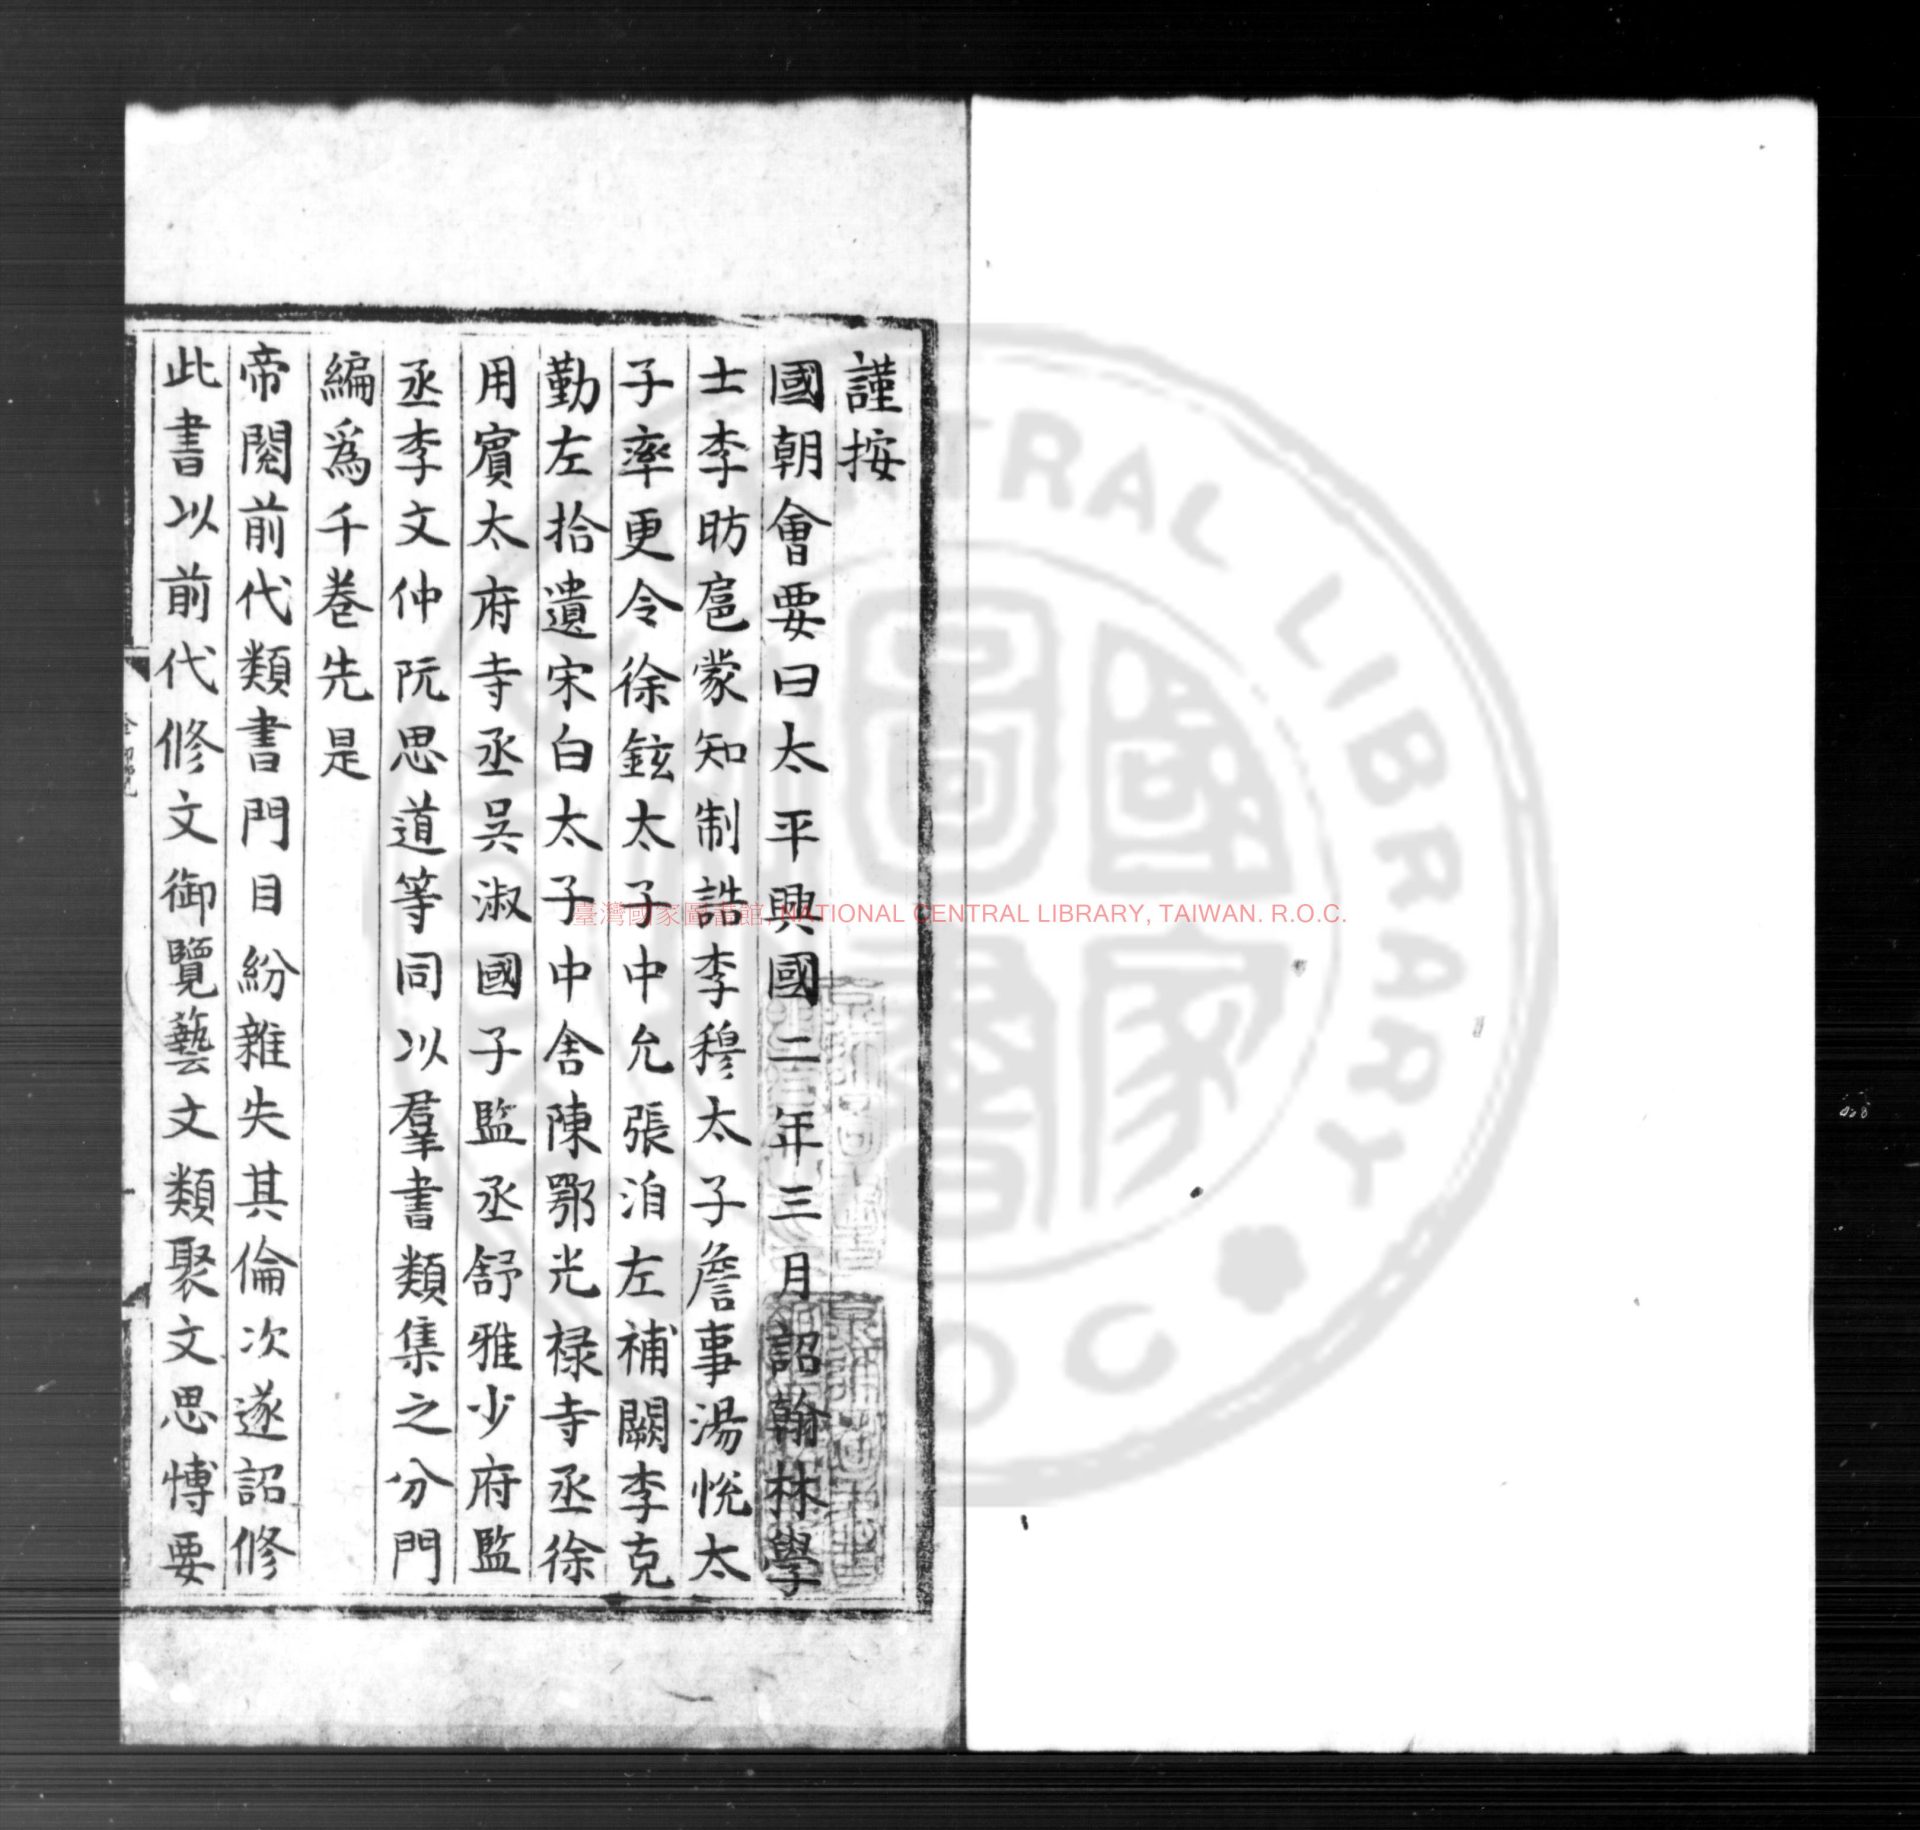 謹按
國朝會要曰太平興國二年三月詔翰林學
士李昉扈蒙知制誥李穆太子詹事湯悅太
子率更令徐鉉太子中允張洎左補闕李克
勤左拾遺宋白太子中舍陳鄂光禄寺丞徐
用賓太府寺丞吳淑國子監丞舒雅少府監
丞李文仲阮思道等同以羣書類集之分門
編爲千卷先是
帝閱前代類書門目紛雜失其倫次遂詔修
此書以前代修文御覽藝文類聚文思博要
臺灣國家圖書館, NATIONAL CENTRAL LIBRARY, TAIWAN. R.O.C.